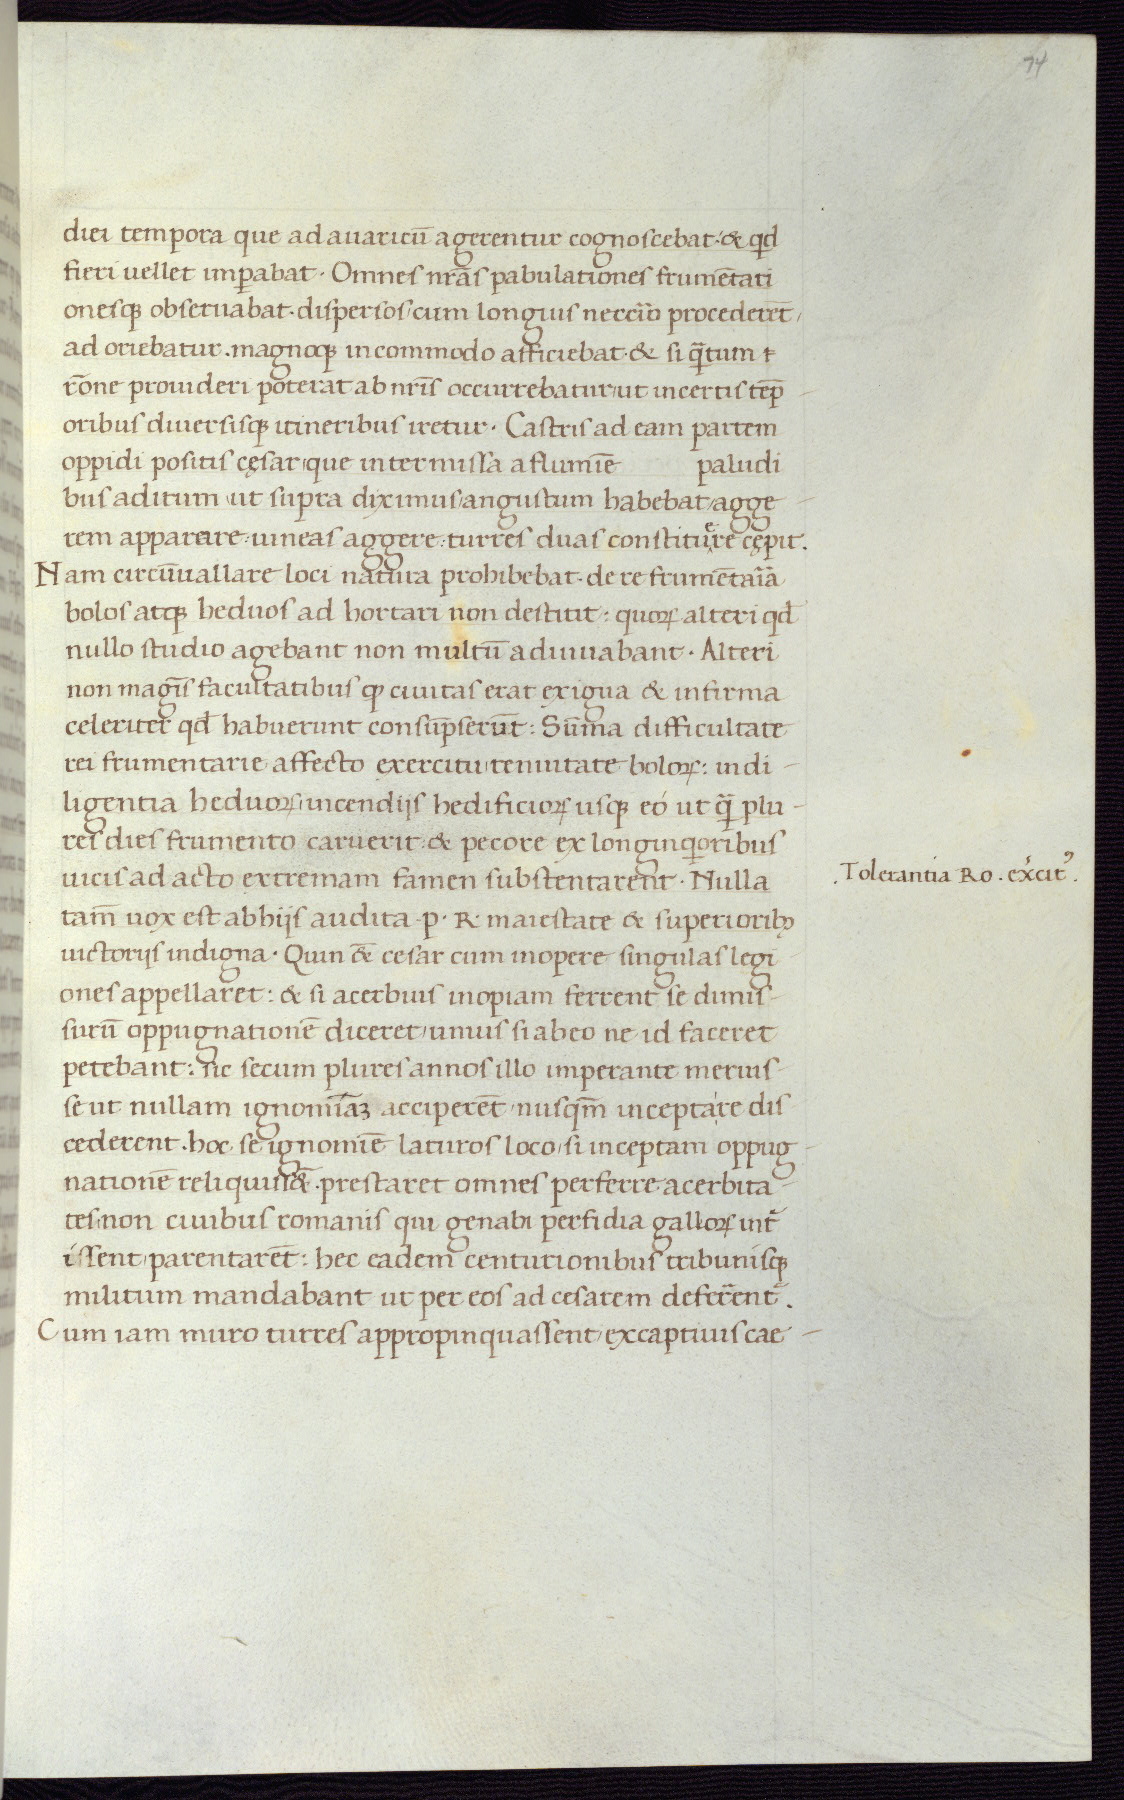 74
diei tempora que ad auaricū agerentur cognoscebat · & qđ
fieri uellet imꝑabat · Omnes nr̄as pabulationes frumētati
onesqꝫ obseruabat · dispersos / cum longius neccīo procederēt /
ad oriebatur . magnoqꝫ incommodo afficiebat · & si q̄tum
r̄one prouideri poterat ab nr̄is occurrebatur / ut incertis tēp
oribus diuersisqꝫ itineribus iretur · Castris ad eam partem
oppidi positis cęsar / que intermissa a flumīe paludi
bus aditum / ut supra diximus / angustum habebat / agge
rem apparare / uineas aggere / turres duas constituere cępit .
Nam circūuallare loci natura prohibebat · de re frumētaīa
bolos atqꝫ heduos ad hortari non destitit : quoꝝ alteri qđ
nullo studio agebant non multū adiuuabant · Alteri
non magīs facultatibus qꝫ ciuitas erat exigua & infirma
celeriter qđ habuerunt consūpserūt : Sūma difficultate
rei frumentarie affecto exercitu / tenuitate boloꝝ : indi -
ligentia heduoꝝ / incendijs hedificioꝝ usqꝫ eó ut q̄ plu -
res dies frumento caruerit / & pecore ex longinqioribus
uicis ad acto extremam famen substentarent · Nulla
tam̄ uox est ab hijs audita · p · R · maiestate & superioribꝫ
uictorijs indigna · Quin & cesar cum in opere singulas legi
ones appellaret : & si acerbius inopiam ferrent se dimis -
surū oppugnationē diceret / uniuis si ab eo ne id faceret
petebant : sic secum plures annos illo imperante meruis -
se ut nullam ignomīaꝫ acciperēt / nusqm̄ inceptare dis
cederent . hoc se ignomīe laturos loco / si inceptam oppug -
nationē reliquissēt . prestaret omnes perferre acerbita -
tes / non ciuibus romanis qui genabi perfidia galloꝝ int̄
issent / parentarēt : hec eadem centurionibus tribunisqꝫ
militum mandabant ut per eos ad cesarem deferrent .
Cum iam muro turres appropinquassent / ex captiuis cae -
. Tolerantia Ro . ex̄cit⁹ .